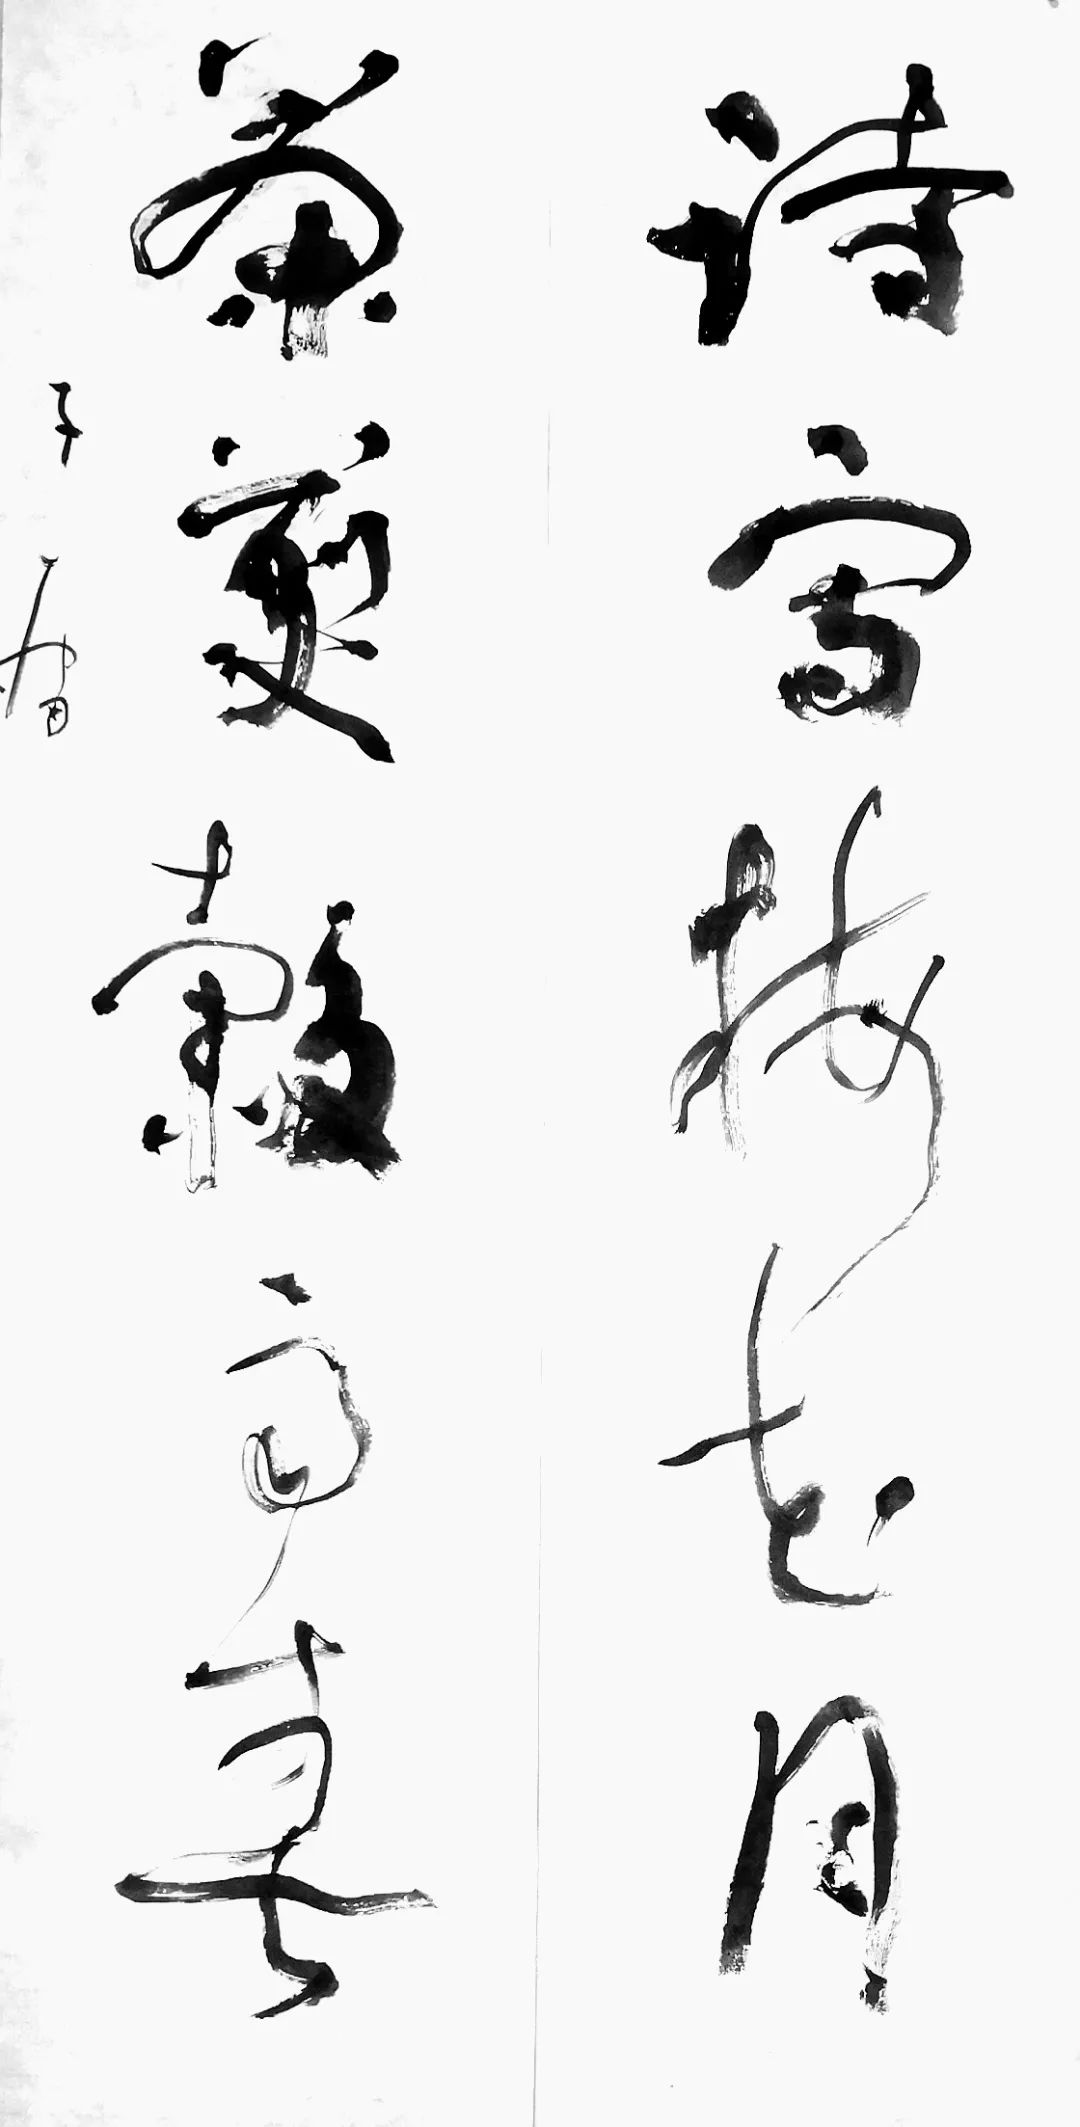 詩寫梅花月
茶煎穀雨春